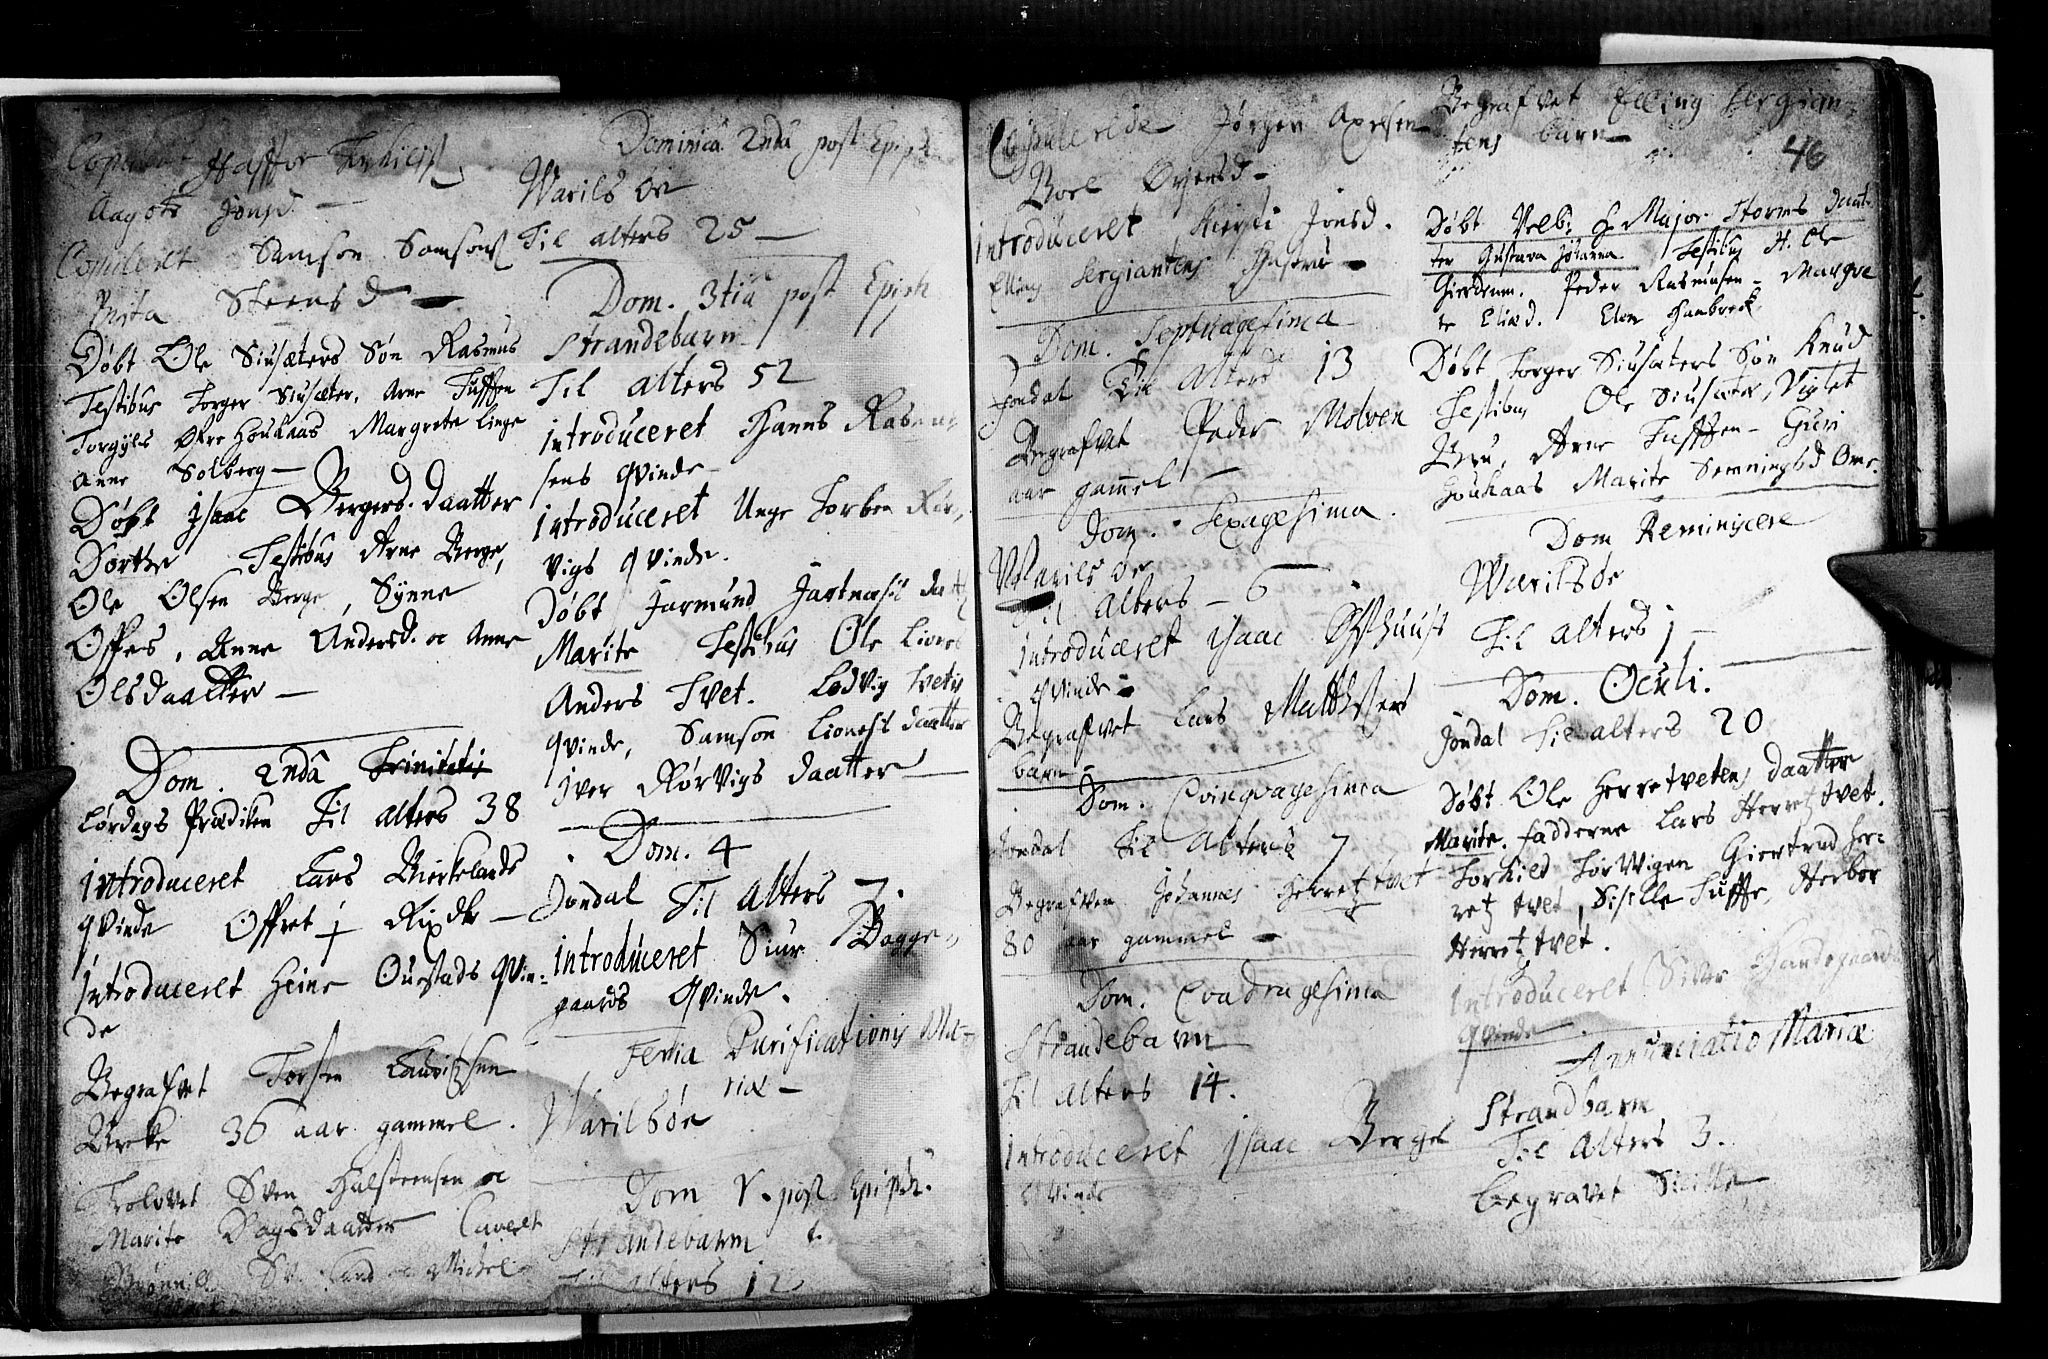 Copuleret Haffor
Aagote Jonsd. —
Copuleret Samson Samsons
Brita Steensd —
Døbt Ole Siusæters Søn Rasmus
Testibus Torger Siusæter, Arne Tuffen
Torgyls Øfre Houkaas Margrete Linge
Anne Solberg —
Døbt Isaac Bergers daatter
Dorthe Testibus Arne Berge,
Ole Olsen Berge, Synne
Offers, Anne Andersd. oc Anne
Olsdaatter —
Dom. 2nda Trinitatis
Lørdags Prædiken Til alters 38
Introduceret Lars Birkelands
qvinde Offret 1 Rixdr —
Introduceret Heine Ourstads Qvin-
de
Begrafvet Torsten Lauritzsen
Birke 36 aar gammel.
Trolovet Sven Halsteensen oc
Marite Dagsdaatter Caverit
oc Michel
Dominica 2nda post Epiph
Warilsøe
Til alters 25 —
Dom. 3tia post Epiph
Strandebarm
Til alters 52
Introduceret Hanns Rasmus
sens qvinde —
Introduceret Unge Torben Rør,
vigs qvinde.
Døbt Jarmund daatt
Marite Testibus Ole
Anders Tvet. Lodvig Tvetis
qvinde, Samson daatter
Iver Rørvigs daatter —
Dom. 4
Jondal Til alters 7.
Introduceret Siur Bagge,
gaards Qvinde.
Feria Purificationis Ma-
riæ —
Warilsøe
Dom V. post Epiph.
Strandebarm
Til alters 12
Copulerede Jørgen Axelsen
Boel Øyersd —
Introduceret Kirsti Jonsd.
Elling Sergiantens Hustru —
Dom. Septuagesima
Jondal Til Alters 13
Begrafvet Peder Molven
aar gammel —
Dom. Sexagesima.
Warilsøe
Til Alters — 6
Introduceret Isaac
qvinde —
Begrafvet Lars Matthisens
barn —
Dom. Qvinqvagesima
Jondal Til Alters 7
Begrafven Johannes Herretztvet
80 aar gammel —
Dom. Qvadragesima
Strandebarm
Til alters 14.
Introduceret Isaac Berges
Qvinde
Begrafvet Elling Sergian-
tens barn —
46
Døbt Velb: H Major Storms daat-
ter Gustava Johanna. Testibus H. Ole
Gierdrum. Peder Rasmusen — Margre
te Eliæd. Elen
Døbt Torger Siusæters Søn Knud
Testibus Ole Siusæter, Viglet
Bru, Arne Tufften — Guri
Houkaas Marite Semmingsd Ome.
Dom Reminiscere
Warilsøe
Til alters 1 —
Dom. Oculi.
Jondal Til alters 20
Døbt Ole Herretvetens daatter
Marite. Fadderne Lars Herretztvet.
Torkild Torvigen Giertrud Her-
retztvet, Siselle Tuffte, Herbor
Herretztvet.
Introduceret Siver
Qvinde
Annunciatio Mariæ
Strandbarm
Til Alters 3.
Begravet Siselle